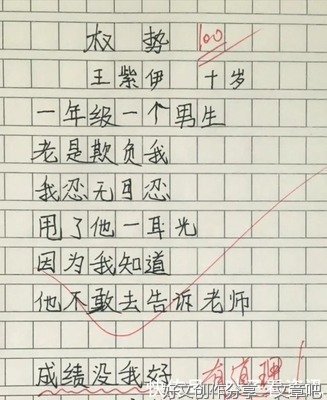 权势 100
王紫伊 十岁
一年级一个男生
老是欺负我
我忍无可忍
甩了他一耳光
因为我知道
他不敢去告诉老师
成绩没我好 有真理！
好文创作分享-文章吧